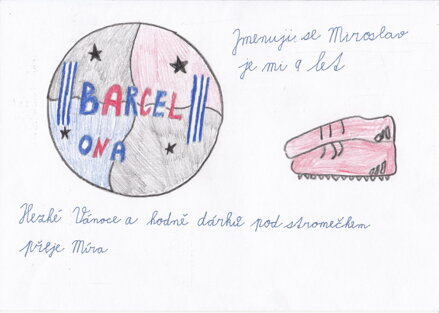 Jmenuji se Miroslav
je mi 9 let
BARCEL
ONA
Hezké Vánoce a hodně dárků pod stromečkem
přeje Míra